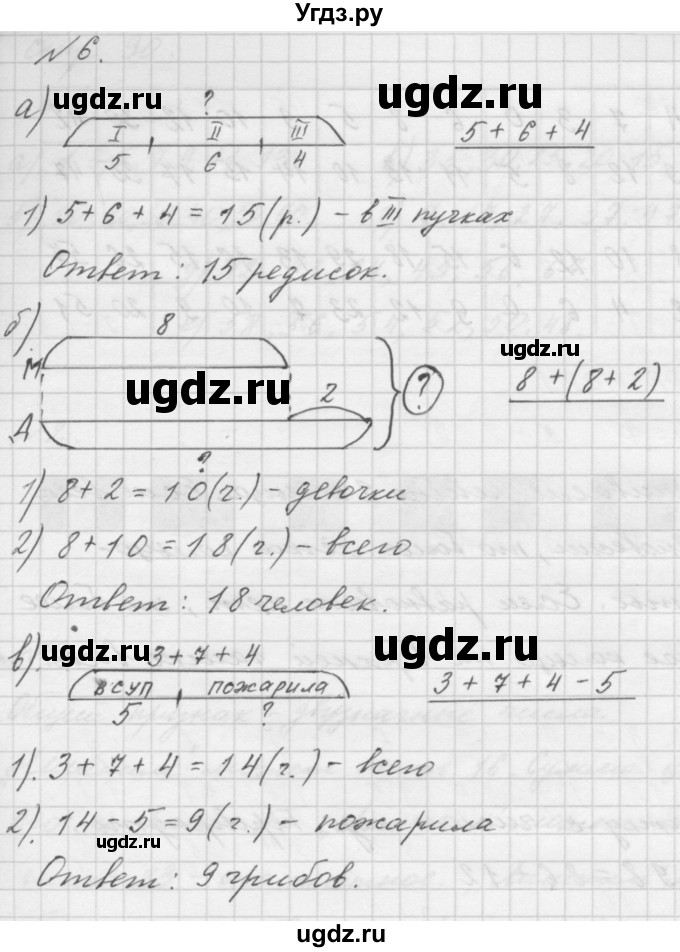 ugdz.ru
№ 6.
а) ugdz.ru ? ugdz.ru
I II III 5 + 6 + 4
5 6 4
1) 5 + 6 + 4 = 15 (р.) – в III пучках
Ответ : 15 редисок.
б) 8 ugdz.ru
М ugdz.ru 2 ? 8 + (8 + 2)
Д
?
1) 8 + 2 = 10 (г.) – девочки
2) 8 + 10 = 18 (г.) – всего
Ответ : 18 человек.
в) ugdz.ru 3 + 7 + 4 ugdz.ru
в суп пожарила 3 + 7 + 4 – 5
5 ?
1). 3 + 7 + 4 = 14 (г.) – всего
2). 14 – 5 = 9 (г.) – пожарила
ugdz.ru
Ответ : 9 грибов.
ugdz.ru